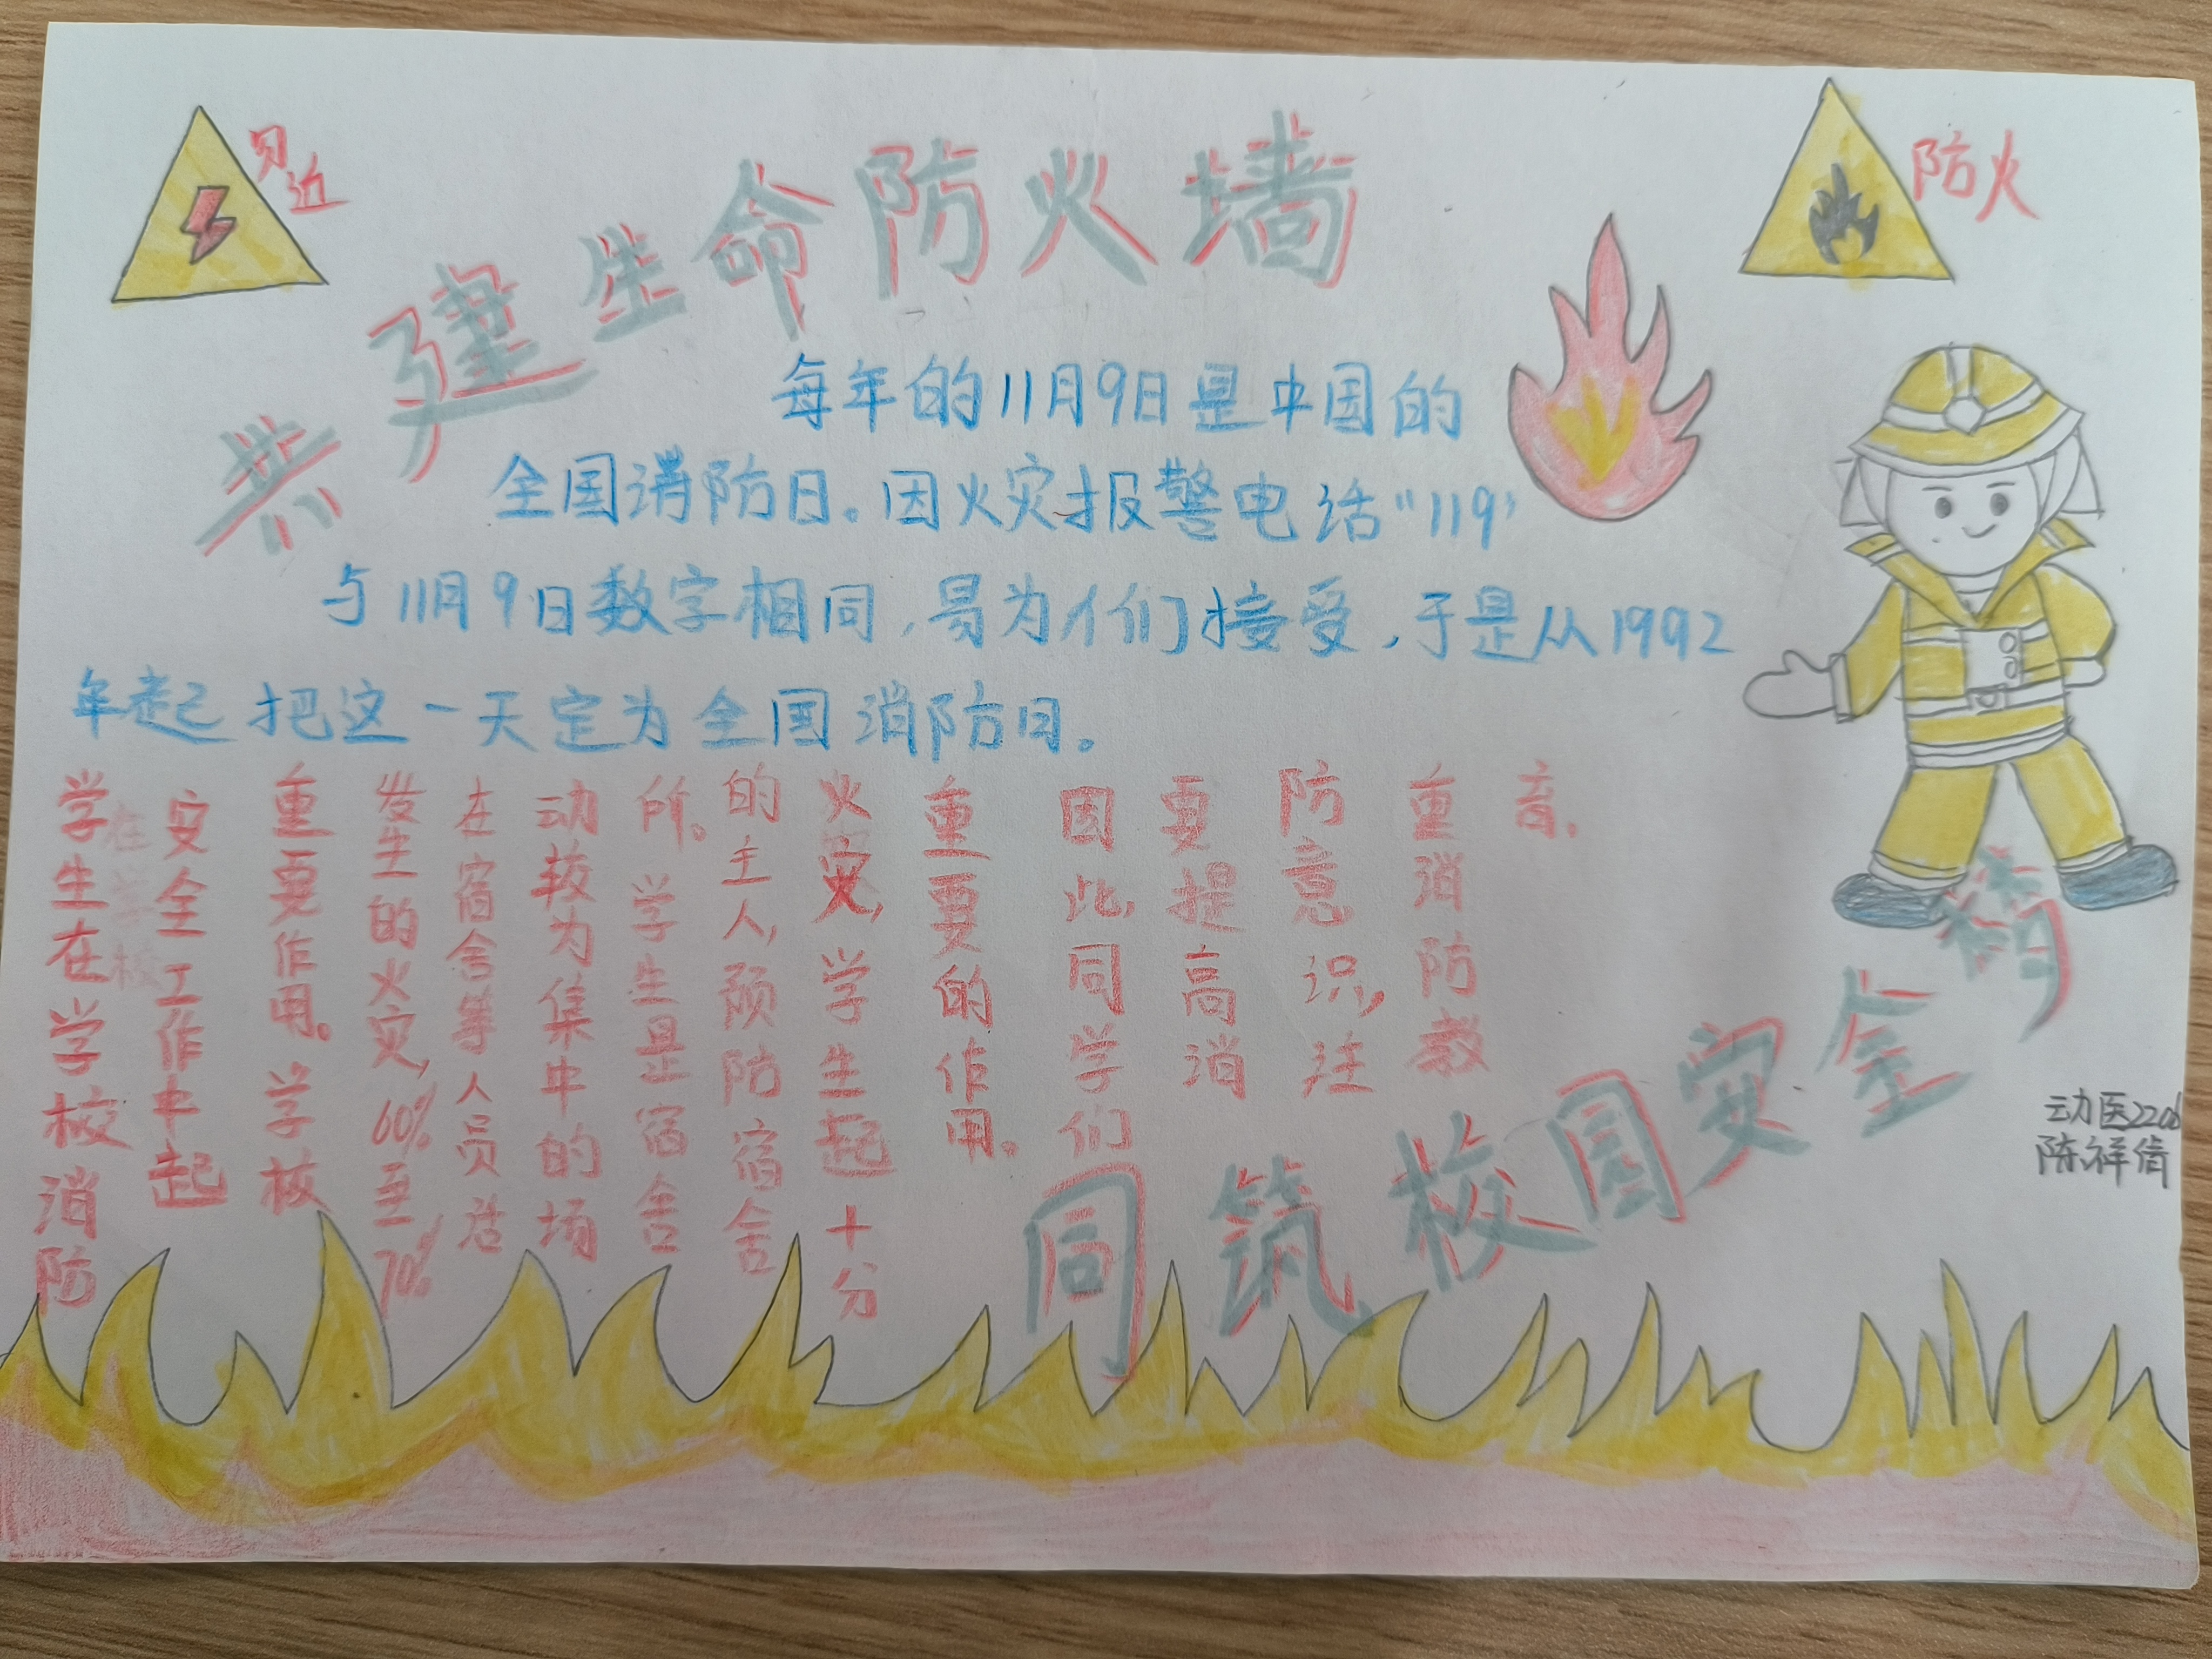 共建生命防火墙
防火
每年的11月9日是中国的
全国消防日。因火灾报警电话“119”
与11月9日数字相同，易为人们接受，于是从1992
年起把这一天定为全国消防日。
学生在学校消防
安全工作中起
重要作用。学校
发生的火灾，60%至70%
在宿舍等人员活
动较为集中的场
所。学生是宿舍
的主人，预防宿舍
火灾，学生起十分
重要的作用。
因此，同学们
要提高消
防意识，注
重消防教
育。
同筑校园安全梦
动医2206
陈祥倩